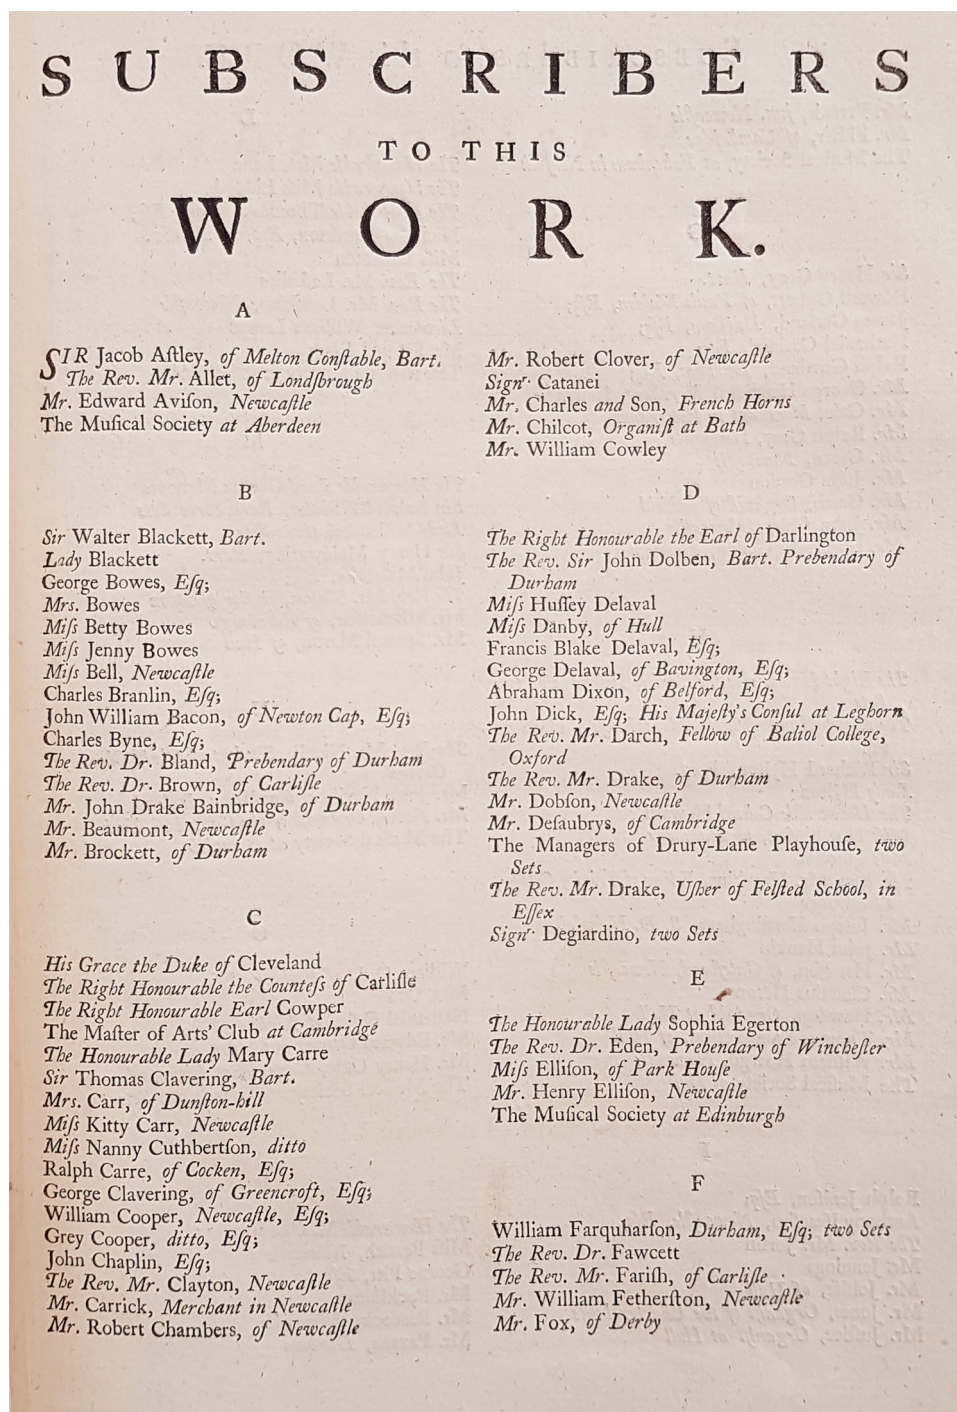 SUBSCRIBERS
TO THIS
WORK.
A
SIR Jacob Aſtley, of Melton Conſtable, Bart.
The Rev. Mr. Allet, of Londſbrough
Mr. Edward Aviſon, Newcaſtle
The Muſical Society at Aberdeen
B
Sir Walter Blackett, Bart.
Lady Blackett
George Bowes, Eſq;
Mrs. Bowes
Miſs Betty Bowes
Miſs Jenny Bowes
Miſs Bell, Newcaſtle
Charles Branlin, Eſq;
John William Bacon, of Newton Cap, Eſq;
Charles Byne, Eſq;
The Rev. Dr. Bland, Prebendary of Durham
The Rev. Dr. Brown, of Carliſle
Mr. John Drake Bainbridge, of Durham
Mr. Beaumont, Newcaſtle
Mr. Brockett, of Durham
C
His Grace the Duke of Cleveland
The Right Honourable the Counteſs of Carliſle
The Right Honourable Earl Cowper
The Maſter of Arts' Club at Cambridge
The Honourable Lady Mary Carre
Sir Thomas Clavering, Bart.
Mrs. Carr, of Dunſton-hill
Miſs Kitty Carr, Newcaſtle
Miſs Nanny Cuthbertſon, ditto
Ralph Carre, of Cocken, Eſq;
George Clavering, of Greencroft, Eſq;
William Cooper, Newcaſtle, Eſq;
Grey Cooper, ditto, Eſq;
John Chaplin, Eſq;
The Rev. Mr. Clayton, Newcaſtle
Mr. Carrick, Merchant in Newcaſtle
Mr. Robert Chambers, of Newcaſtle
Mr. Robert Clover, of Newcaſtle
Signr. Catanei
Mr. Charles and Son, French Horns
Mr. Chilcot, Organiſt at Bath
Mr. William Cowley
D
The Right Honourable the Earl of Darlington
The Rev. Sir John Dolben, Bart. Prebendary of
Durham
Miſs Huſſey Delaval
Miſs Danby, of Hull
Francis Blake Delaval, Eſq;
George Delaval, of Bavington, Eſq;
Abraham Dixon, of Belford, Eſq;
John Dick, Eſq; His Majeſty's Conſul at Leghorn
The Rev. Mr. Darch, Fellow of Baliol College,
Oxford
The Rev. Mr. Drake, of Durham
Mr. Dobſon, Newcaſtle
Mr. Deſaubrys, of Cambridge
The Managers of Drury-Lane Playhouſe, two
Sets
The Rev. Mr. Drake, Uſher of Felſted School, in
Eſſex
Signr. Degiardino, two Sets
E
The Honourable Lady Sophia Egerton
The Rev. Dr. Eden, Prebendary of Wincheſter
Miſs Elliſon, of Park Houſe
Mr. Henry Elliſon, Newcaſtle
The Muſical Society at Edinburgh
F
William Farquharſon, Durham, Eſq; two Sets
The Rev. Dr. Fawcett
The Rev. Mr. Fariſh, of Carliſle
Mr. William Fetherſton, Newcaſtle
Mr. Fox, of Derby